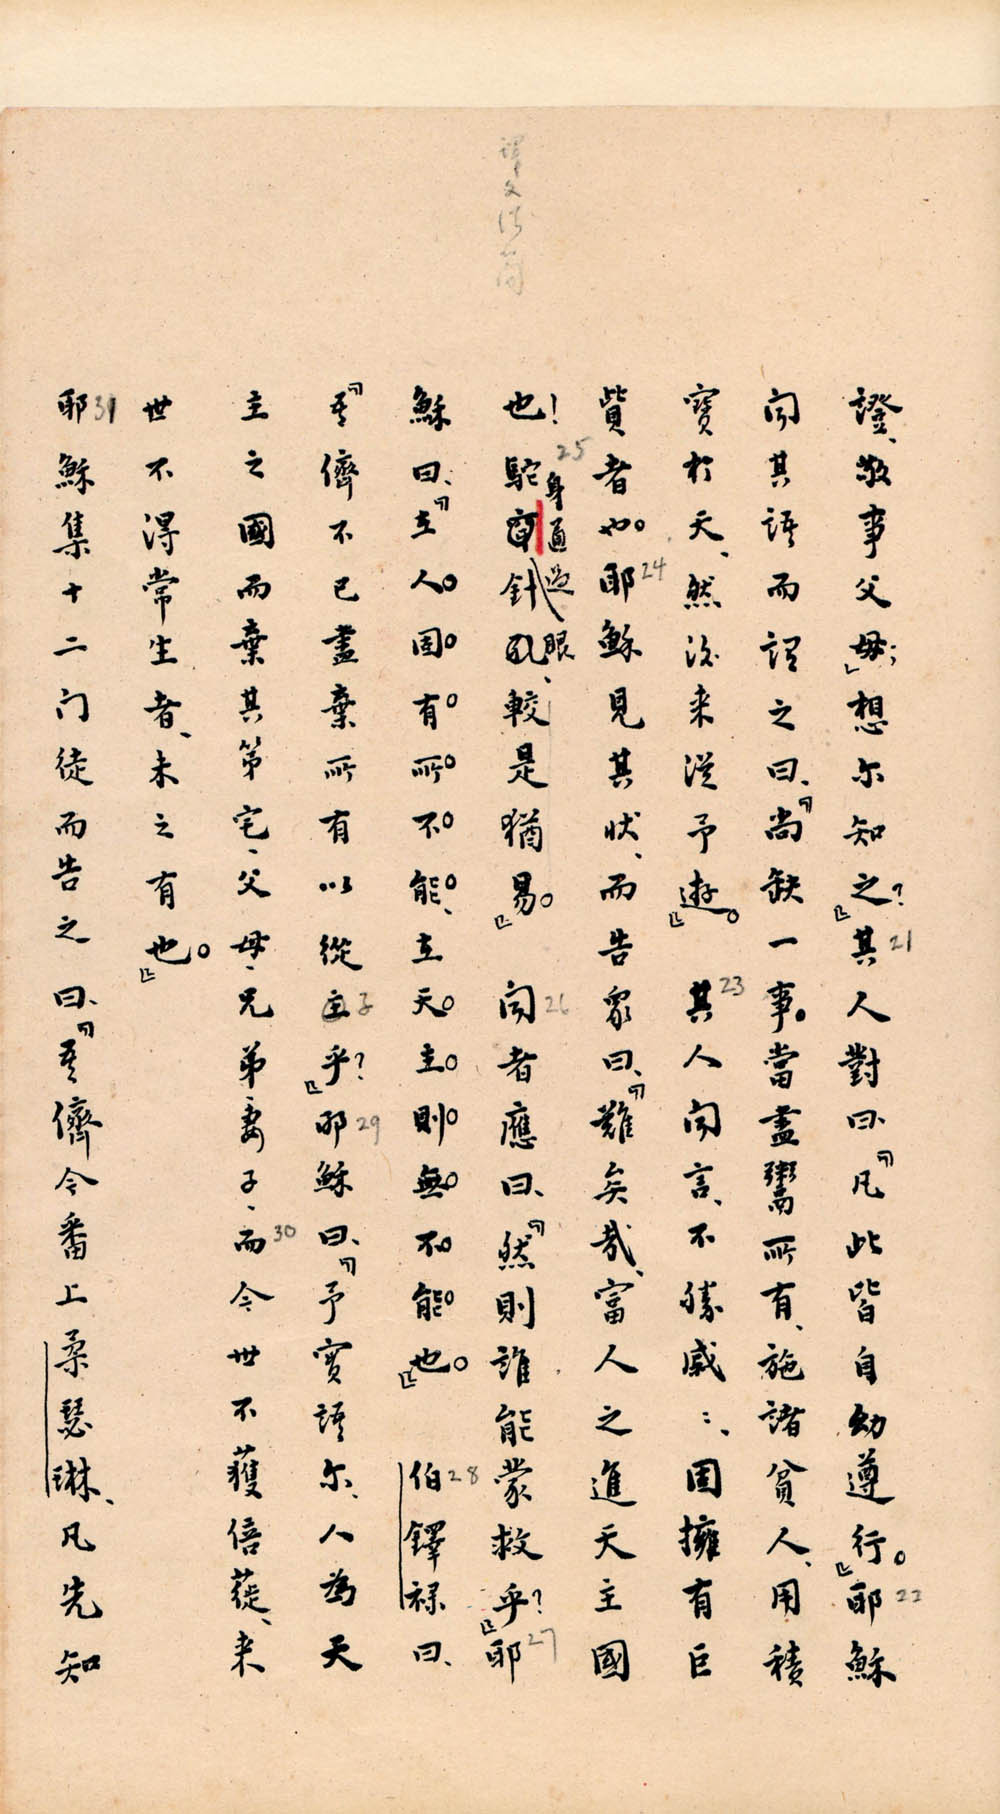 譯文須簡
證、敬事父母；」想尔知之？』21其人對曰、『凡此皆自幼遵行。』22耶穌
聞其語而謂之曰、『尚缺一事。當盡鬻所有、施諸貧人、用積
寶於天、然後来從予遊。』23其人聞言、不勝慼﹕、固擁有巨
貲者也。24耶穌見其狀、而告眾曰、『難矣哉、富人之進天主國
也！25駝身通過針眼、較是猶易。』26聞者應曰、『然則誰能蒙救乎？』27耶
穌曰、『在人固有所不能、在天主則無不能也。』28伯鐸祿曰、
『吾儕不已盡棄所有以從主子乎？』29耶穌曰、『予實語尔、人為天
主之國而棄其第宅、父母、兄弟妻子、30而今世不獲倍蓰、来
世不得常生者、未之有也。』
31耶穌集十二门徒而告之曰、『吾儕今番上柔瑟琳、凡先知